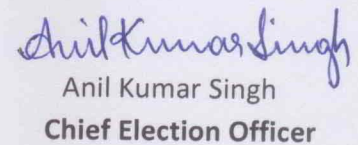 Anil Kumar Singh
Anil Kumar Singh
Chief Election Officer